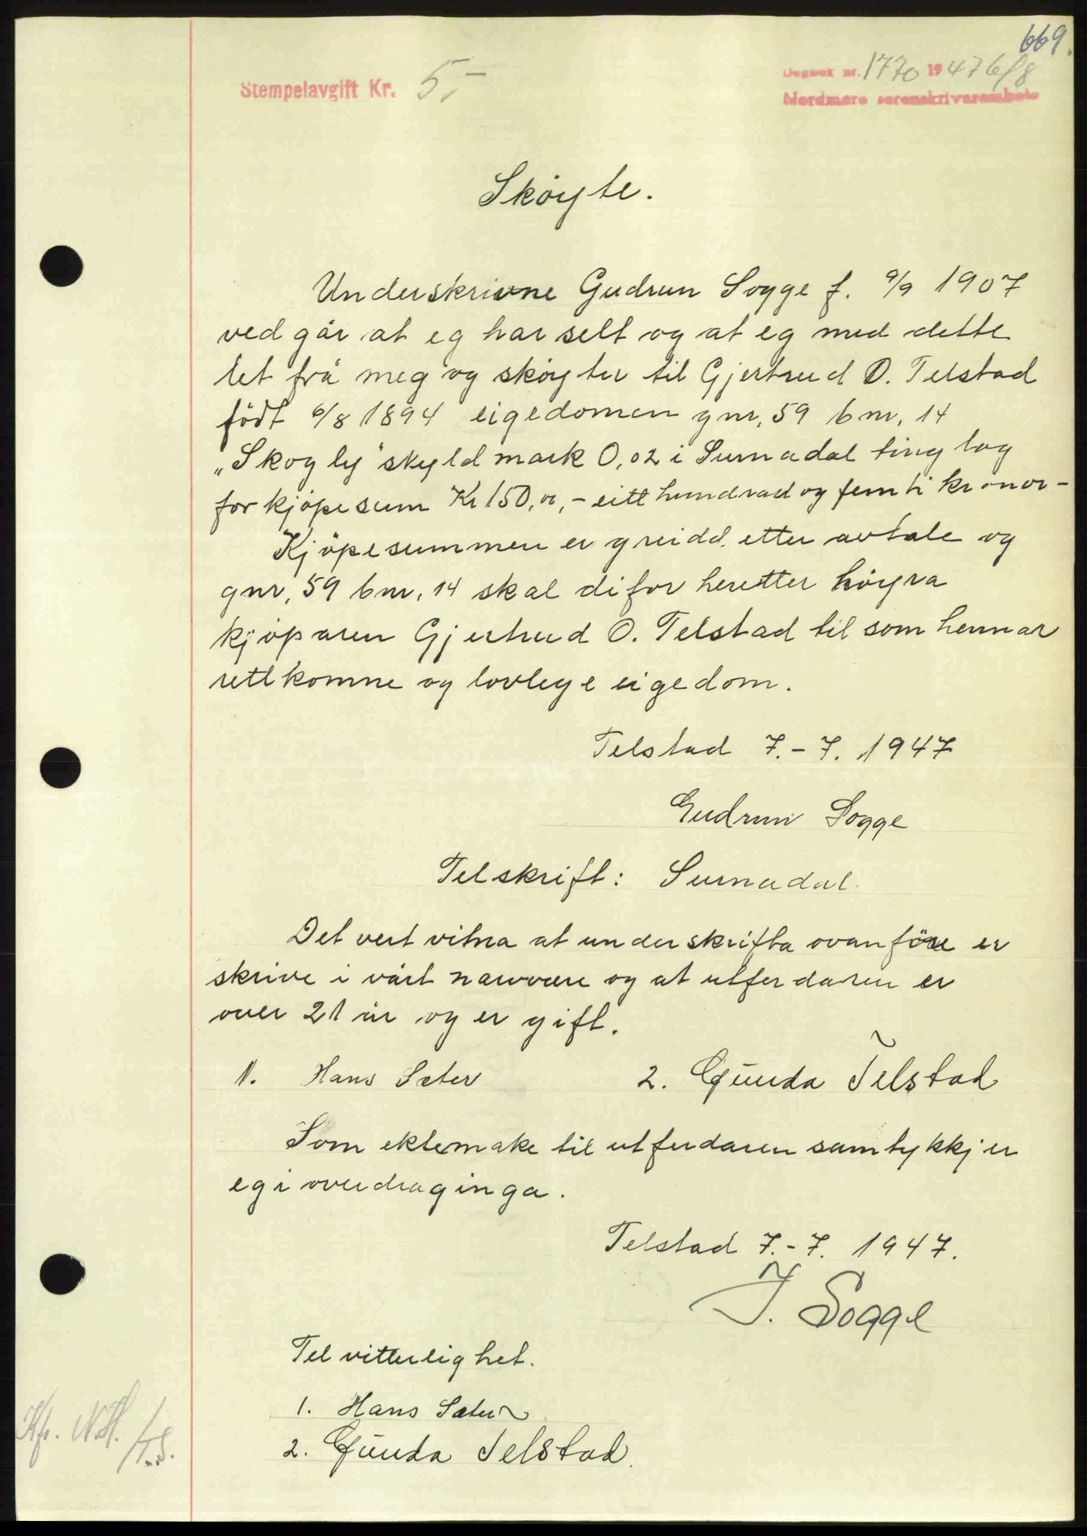 669.
Stempelavgift Kr. 5,-
Dagbok nr. 1770 1947 6/8
Nordmøre sorenskriverembete
Skøyte.
Underskrivne Gudrun Sogge f. 9/9 1907
vedgår at eg har selt og at eg med dette
let frå meg og skøyter til Gjertrud O. Telstad
født 6/8 1894 eigedomen gnr. 59 bnr. 14
„Skogly" skyldmark 0,02 i Surnadal tinglag
for kjøpesum Kr 150,00,- eitt hundrad og femti kronor-
Kjøpesummen er greidd etter avtale og
gnr. 59 bnr. 14 skal difor heretter høyra
kjøparen Gjertrud O. Telstad til som hennar
rettkomne og lovlege eigedom.
Telstad 7.-7. 1947
Gudrun Sogge
Telskrift: Surnadal.
Det vert vitna at underskrifta ovanføre er
skrive i vårt nærvære og at utferdaren er
over 21 år og er gift.
1. Hans Sæter 2. Gunda Telstad
Som ektemake til utferdaren samtykkjer
eg i overdraginga.
Telstad 7.-7. 1947.
J. Sogge
Tel vitterlighet.
1. Hans Sæter
2. Gunda Telstad.
Kfr. N.H.